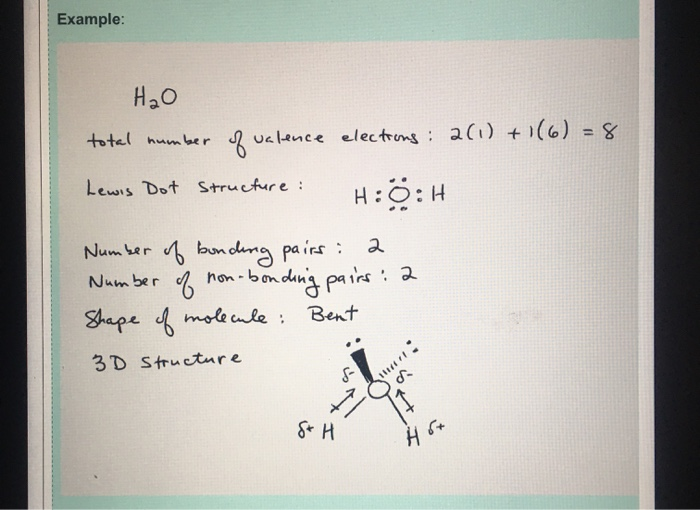 Example:
H₂O
total number of valence electrons : 2(1) + 1(6) = 8
Lewis Dot Structure : H:Ö:H
Number of bonding pairs : 2
Number of non-bonding pairs : 2
Shape of molecule : Bent
3D Structure
δ- δ-
δ+ H H δ+